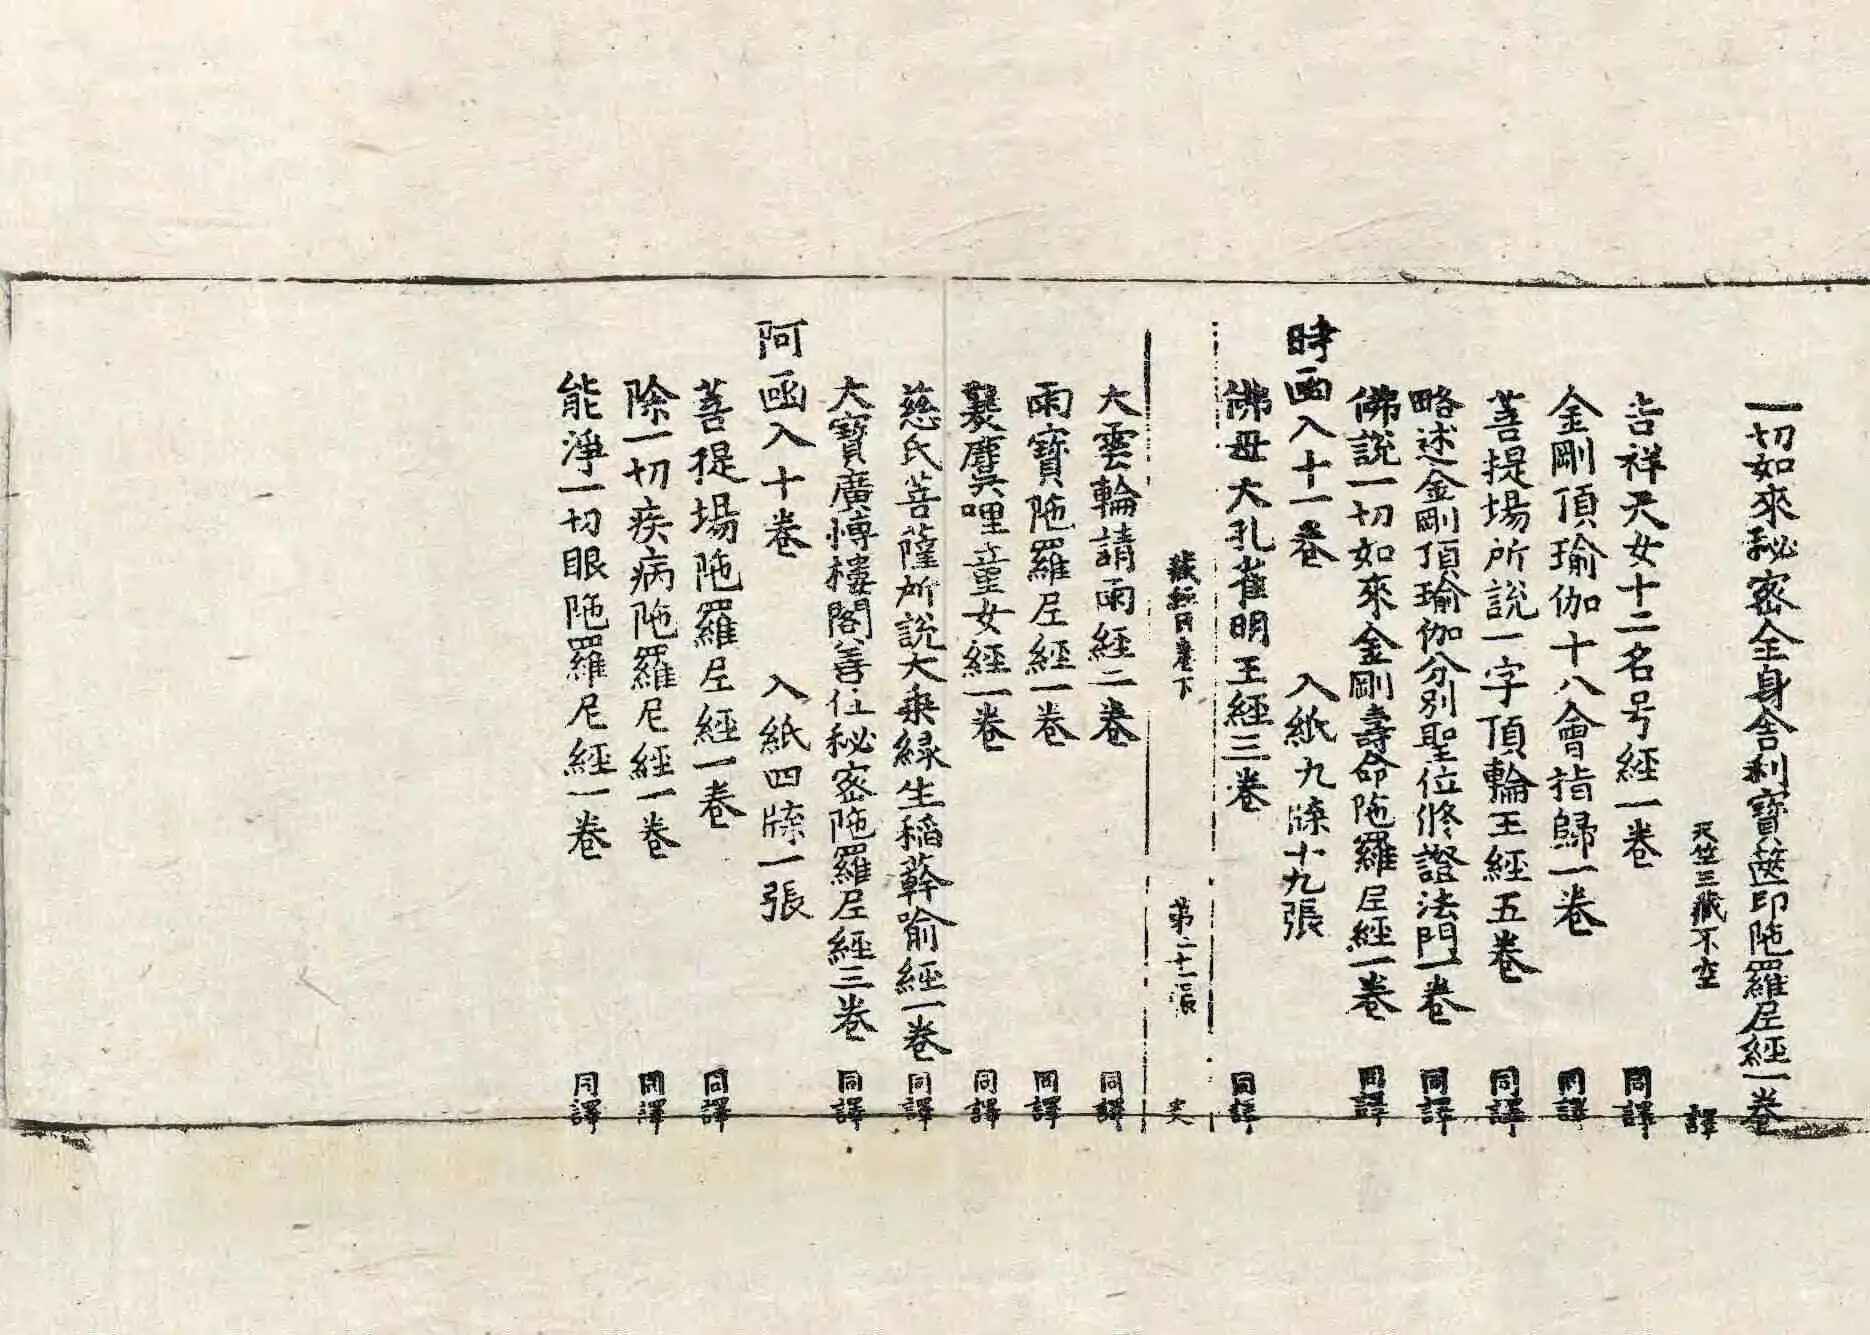 一切如來秘密全身舍利寶篋印陁羅尼經一卷
天竺三藏不空 譯
吉祥天女十二名号經一卷 同譯
金剛頂瑜伽十八會指歸一卷 同譯
菩提場所說一字頂輪王經五卷 同譯
略述金剛頂瑜伽分別聖位修證法門一卷 同譯
佛說一切如來金剛壽命陁羅尼經一卷 同譯
時函入十一卷 入紙九牒十九張
佛母大孔雀明王經三卷 同譯
藏經目卷下 第二十二張 史
大雲輪請雨經二卷 同譯
雨寶陁羅尼經一卷 同譯
蘘麌哩童女經一卷 同譯
慈氏菩薩所說大乘緑生稲𦼮喻經一卷 同譯
大寶廣愽樓閣善住秘密陁羅尼經三卷 同譯
阿函入十卷 入紙四牒一張
菩提場陁羅尼經一卷 同譯
除一切疾病陁羅尼經一卷 同譯
能淨一切眼陁羅尼經一卷 同譯